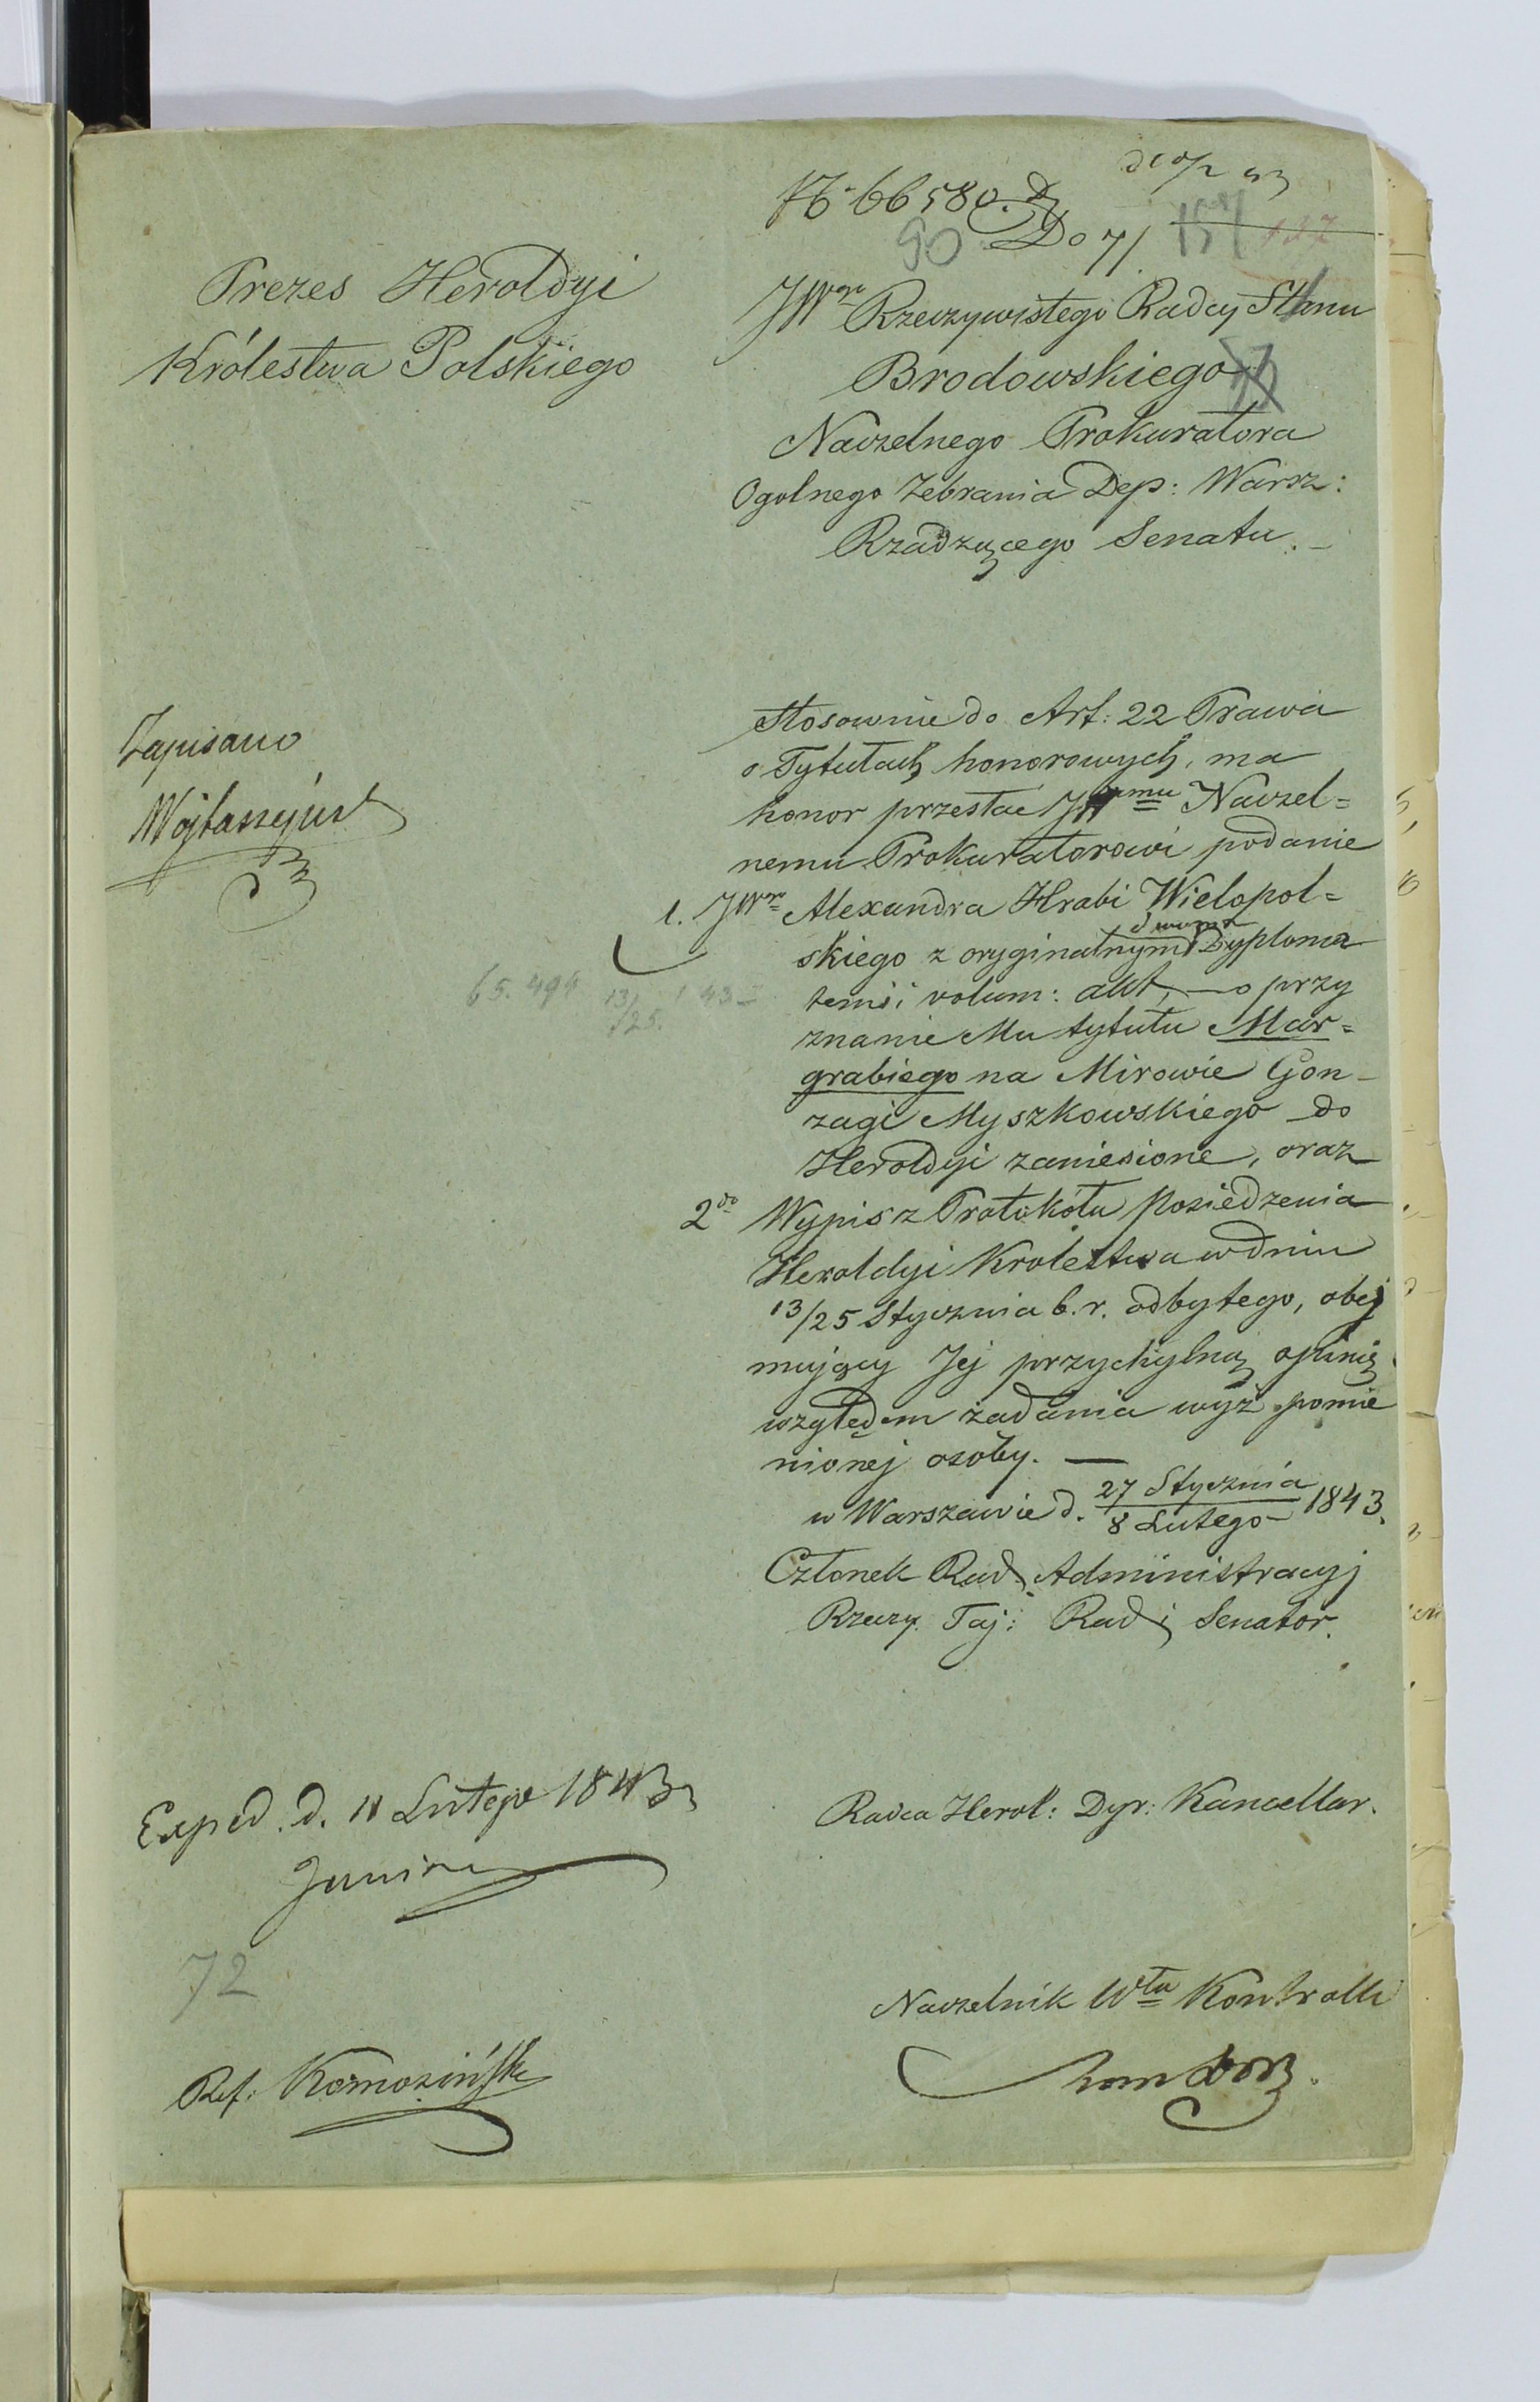 66580.
90 Do
137
Prezes Heroldyi
Królestwa Polskiego
JWgo Rzeczywistego Radcy Stanu
Brodowskiego
Naczelnego Prokuratora
Ogolnego Zebrania Dep: Warsz:
Rządzącego Senatu. –
Zapisano
Stosownie do Art: 22 Prawa
o Tytułach honorowych, ma
honor przesłać JWemu Naczel=
nemu Prokuratorowi podanie
1. JWgo Alexandra Hrabi Wielopol=
dwoma
skiego z oryginalnymi Dyploma
tami i volum: akt, — o przy
65. 494 13/25. 1 43
znanie Mu tytułu Mar=
grabiego na Mirowie Gon-
zagi Myszkowskiego do
Heroldyi zaniesione, oraz
2do Wypis z Protokółu Posiedzenia
Heroldyi Krolestwa w dniu
13/25 Stycznia b. r. odbytego, obej
mujący Jej przychylną opinią
względem żądania wyż pomie
nionej osoby. —
w Warszawie d. 27 Stycznia / 8 Lutego 1843.
Członek Rady Administracyj
Rzeczy. Taj: Radi, Senator.
Exped. d. 11 Lutego 1843
Radca Herol: Dyr: Kancellar.
72
Naczelnik Wtu Kontrolli
Ref: Komoziński